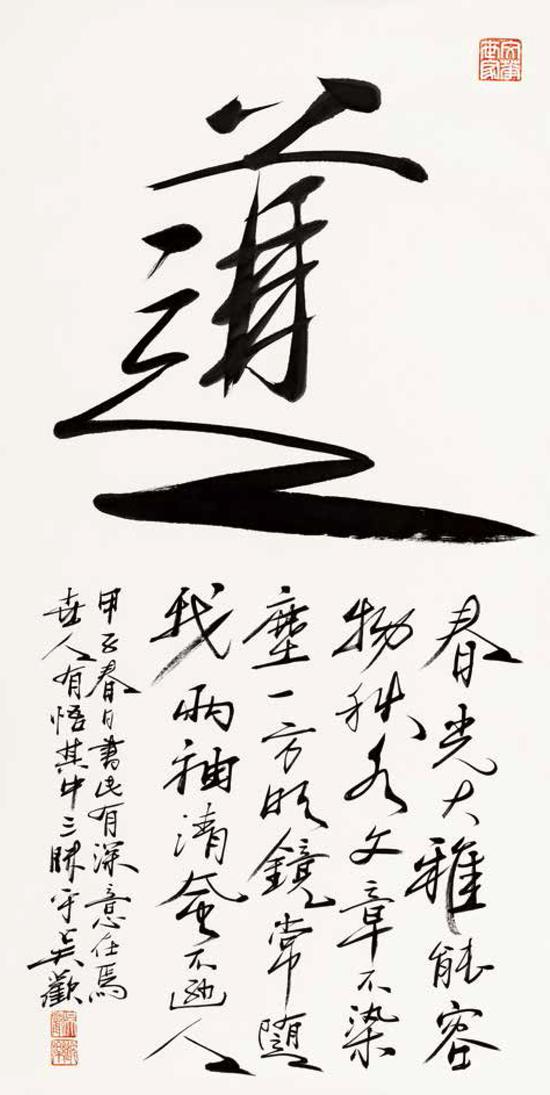 文華世家
道
春光大雅能容
物秋水文章不染
塵一方明鏡常隨
我兩袖清風不遜人
甲午春日書此有深意在焉
世人有悟其中三昧乎吳歡